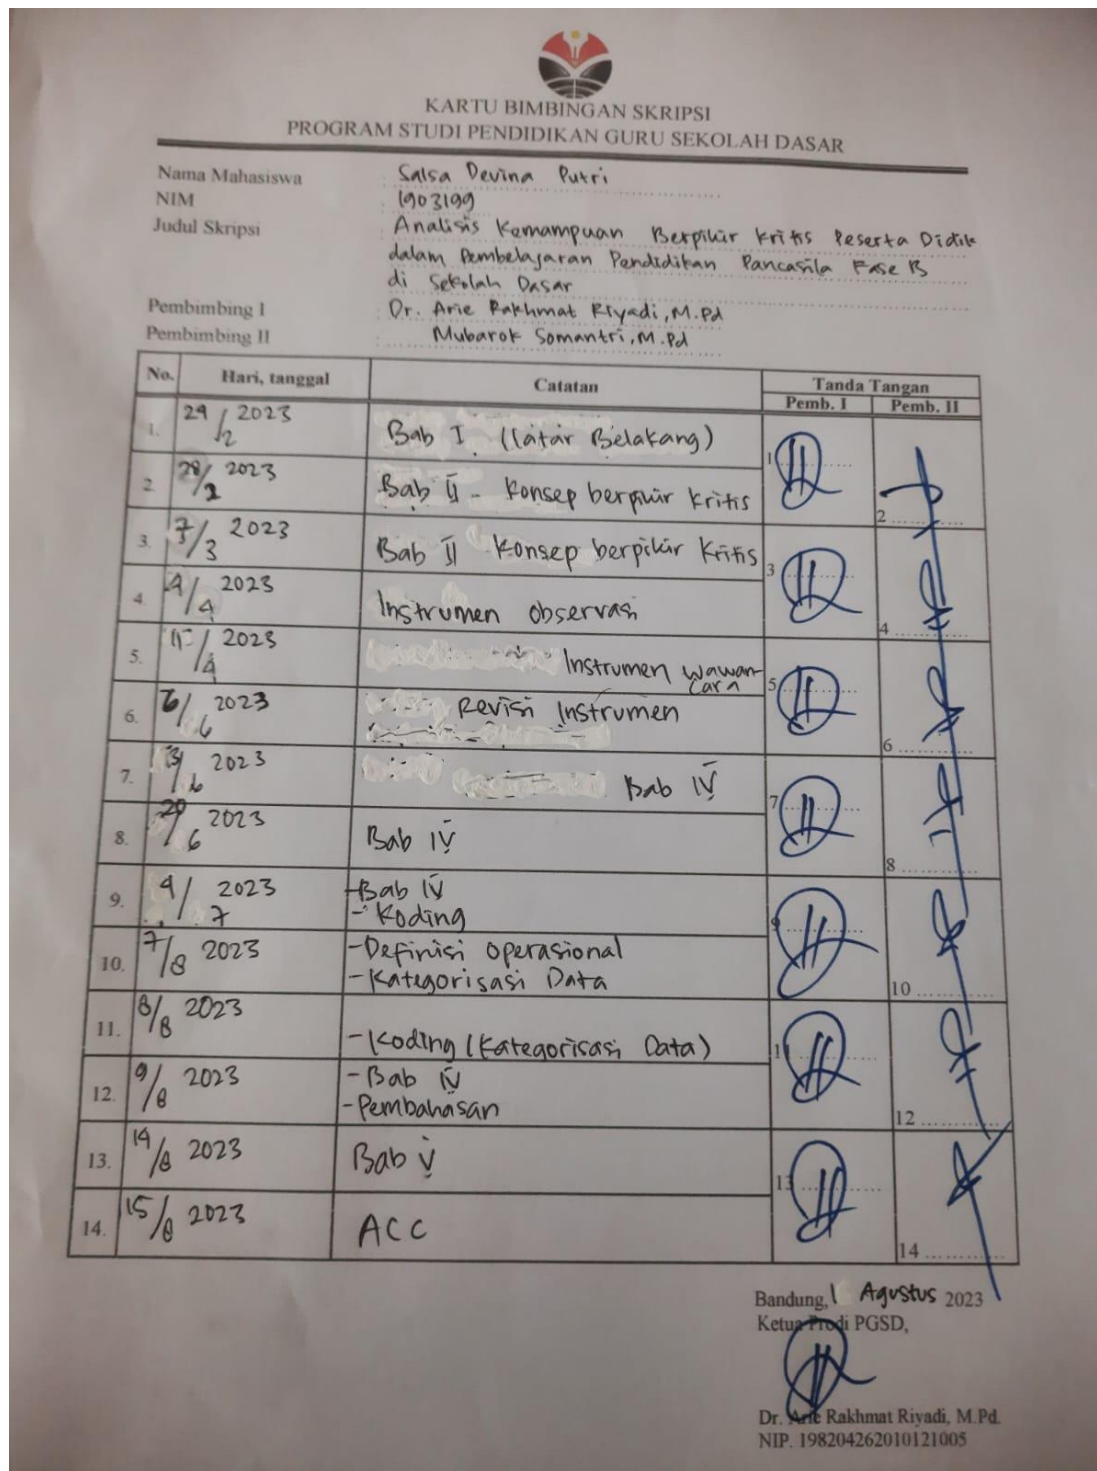 KARTU BIMBINGAN SKRIPSI
PROGRAM STUDI PENDIDIKAN GURU SEKOLAH DASAR
Nama Mahasiswa : Salsa Devina Putri
NIM : 1903199
Judul Skripsi : Analisis Kemampuan Berpikir Kritis Peserta Didik
dalam Pembelajaran Pendidikan Pancasila Fase B
di Sekolah Dasar
Pembimbing I : Dr. Arie Rakhmat Riyadi, M.Pd
Pembimbing II : Mubarok Somantri, M.Pd
No. Hari, tanggal Catatan Tanda Tangan
Pemb. I Pemb. II
1. 2023 Bab I (Latar Belakang) 1
2. 2023 Bab II - Konsep berpikir kritis 2
3. 7/3 2023 Bab II Konsep berpikir kritis 3
4. 4/4 2023 Instrumen observasi 4
5. 2023 Instrumen Wawan- 5
cara
6. 6/6 2023 Revisi Instrumen 6
7. 13/6 2023 Bab IV 7
8. 20/6 2023 Bab IV 8
9. 4/7 2023 - Bab IV 9
- Koding
10. 7/8 2023 - Definisi operasional 10
- Kategorisasi Data
11. 8/8 2023 - Koding (Kategorisasi Data) 11
12. 9/8 2023 - Bab IV 12
- Pembahasan
13. 14/8 2023 Bab V 13
14. 15/8 2023 ACC 14
Bandung, 1 Agustus 2023
Ketua Prodi PGSD,
Dr. Arie Rakhmat Riyadi, M.Pd.
NIP. 198204262010121005